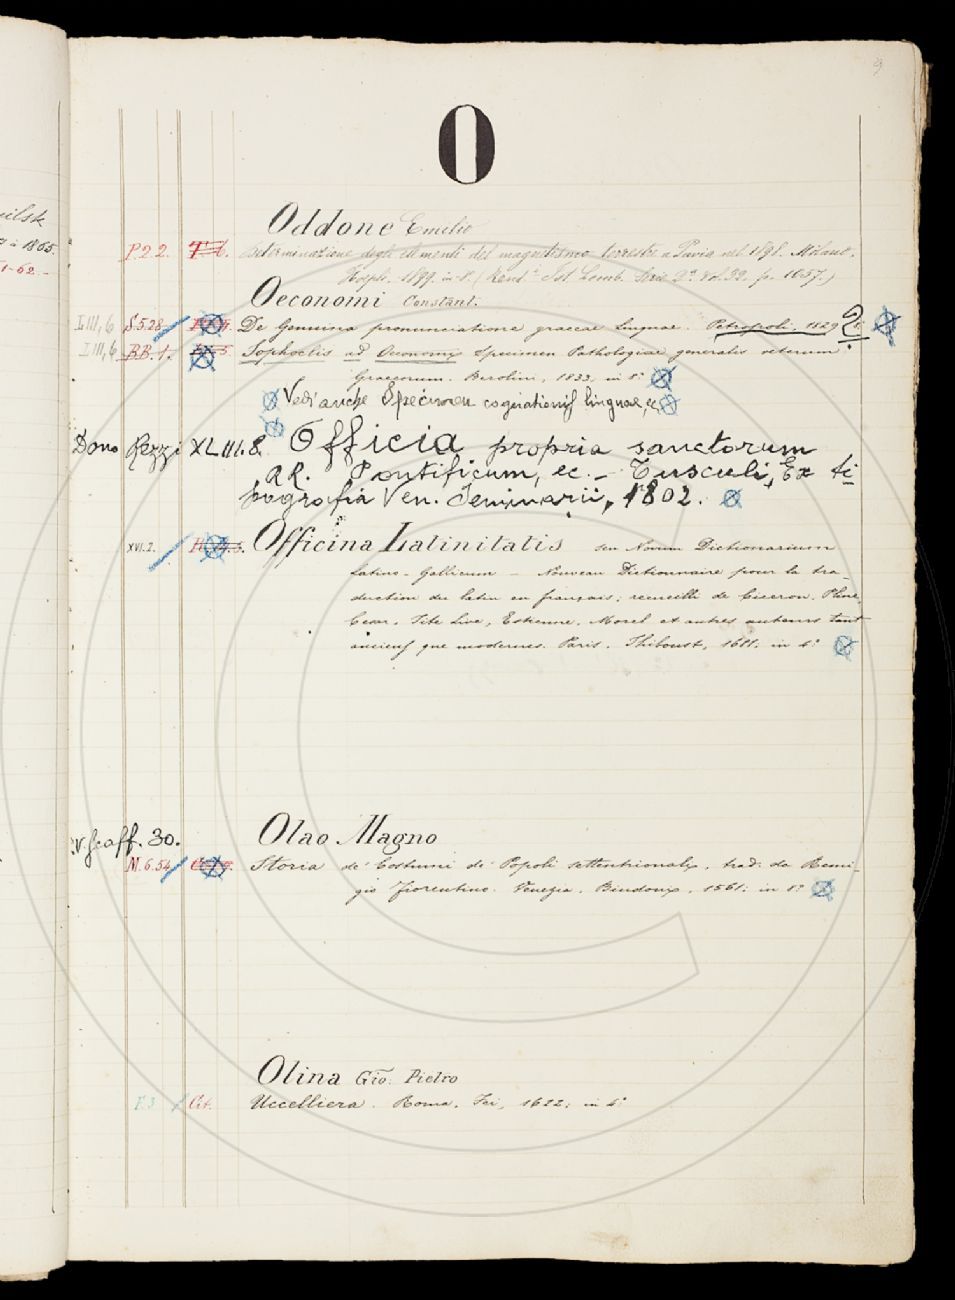 9
O
Oddone Emilio
P.2.2. Determinazione degli elementi del magnetismo terrestre a Pavia nel 1898. Milano.
Hoepli. 1899. in-8. (Rend.ti Ist. Lomb. Serie 2ª Vol. 32. p. 1057.)
Oeconomi Constant.
L III, 6 S.5.28. De Genuina pronunciatione graecae linguae. Petropoli. 1829 2
L III, 6 BB.1. Sophoclis ad Oeconomi Specimen Pathologiae generalis veterum
Graecorum. Berolini, 1833. in 8°
Vedi anche Specimen linguae, ec.
Dono Rezzi XLIII.8. Officia propria sanctorum
RR. Pontificum, ec. - Tusculi, Ex ti
pografia Ven. Seminarii, 1802.
XVI.2. Officina Latinitatis seu Novum Dictionarium
Latino-Gallicum – Nouveau Dictionnaire pour la tra-
duction du latin en français; recueilli de Ciceron, Pline,
Cesar, Tite Live, Estienne, Morel et autres auteurs tant
anciens que modernes. Paris. Thiboust, 1681. in 4°
Olao Magno
V. Scaff. 30.
M.6.54 Storia de' Costumi de' Popoli settentrionali, trad. da Remi-
gio Fiorentino. Venezia, Bindoni, 1561; in 8°
Olina Gio. Pietro
F.3 Cit. Uccelliera. Roma. Fei, 1622; in 4°